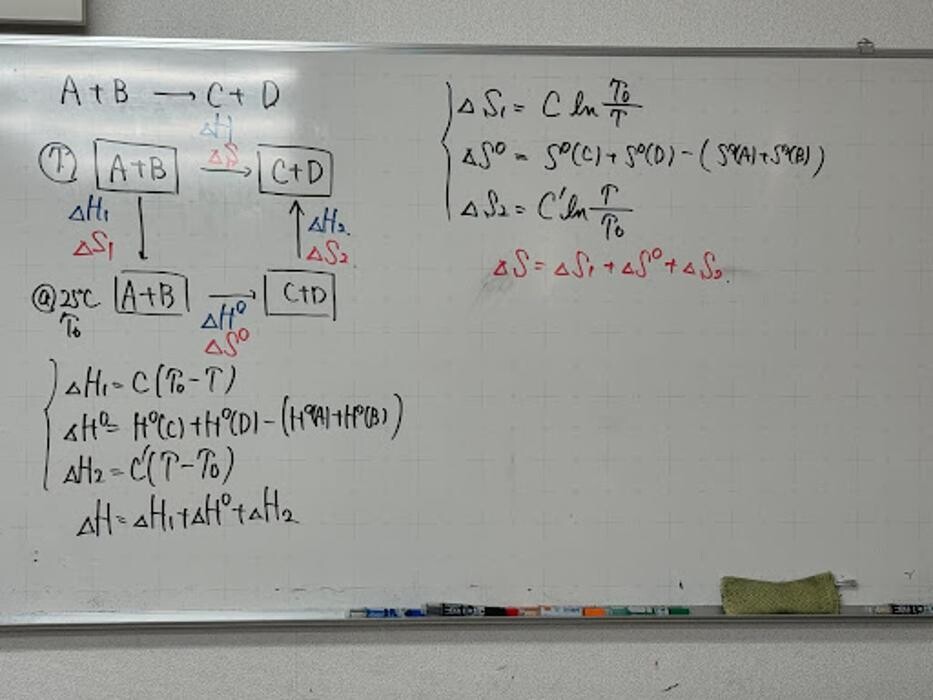 A + B → C + D
ΔH
ΔS
Ⓣ A+B → C+D
ΔH₁
ΔS₁
ΔH₂
ΔS₂
@ 25℃ A+B → C+D
T₀
ΔH⁰
ΔS⁰
ΔH₁ = C(T₀-T)
ΔH⁰ = H⁰(C)+H⁰(D)-(H⁰(A)+H⁰(B))
ΔH₂ = C'(T-T₀)
ΔH = ΔH₁+ΔH⁰+ΔH₂
ΔS₁ = C ln T₀/T
ΔS⁰ = S⁰(C)+S⁰(D)-(S⁰(A)+S⁰(B))
ΔS₂ = C' ln T/T₀
ΔS = ΔS₁+ΔS⁰+ΔS₂.